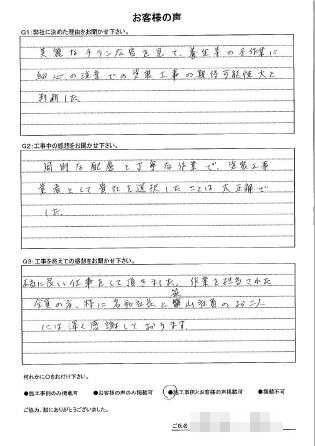 お客様の声
Q1:弊社に決めた理由をお聞かせ下さい。
美麗なチラシ広告を見て、養生等の手作業に
細心の注意での塗装工事の期待可能性大と
判断した
Q2:工事中の感想をお聞かせ下さい。
周到な配慮と丁寧な作業で、塗装工事
業者として貴社を選択したことは大正解で
した。
Q3:工事を終えての感想をお聞かせ下さい。
本当に良い仕事をして頂きました。作業を担当された
全員の方、特に名和社長と山社員のお二人
には深く感謝しております
何れかに○をお付け下さい。
●施工事例のみ掲載可 ●お客様の声のみ掲載可 ●施工事例とお客様の声掲載可 ●掲載不可
ご協力、誠にありがとうございました。
ご氏名